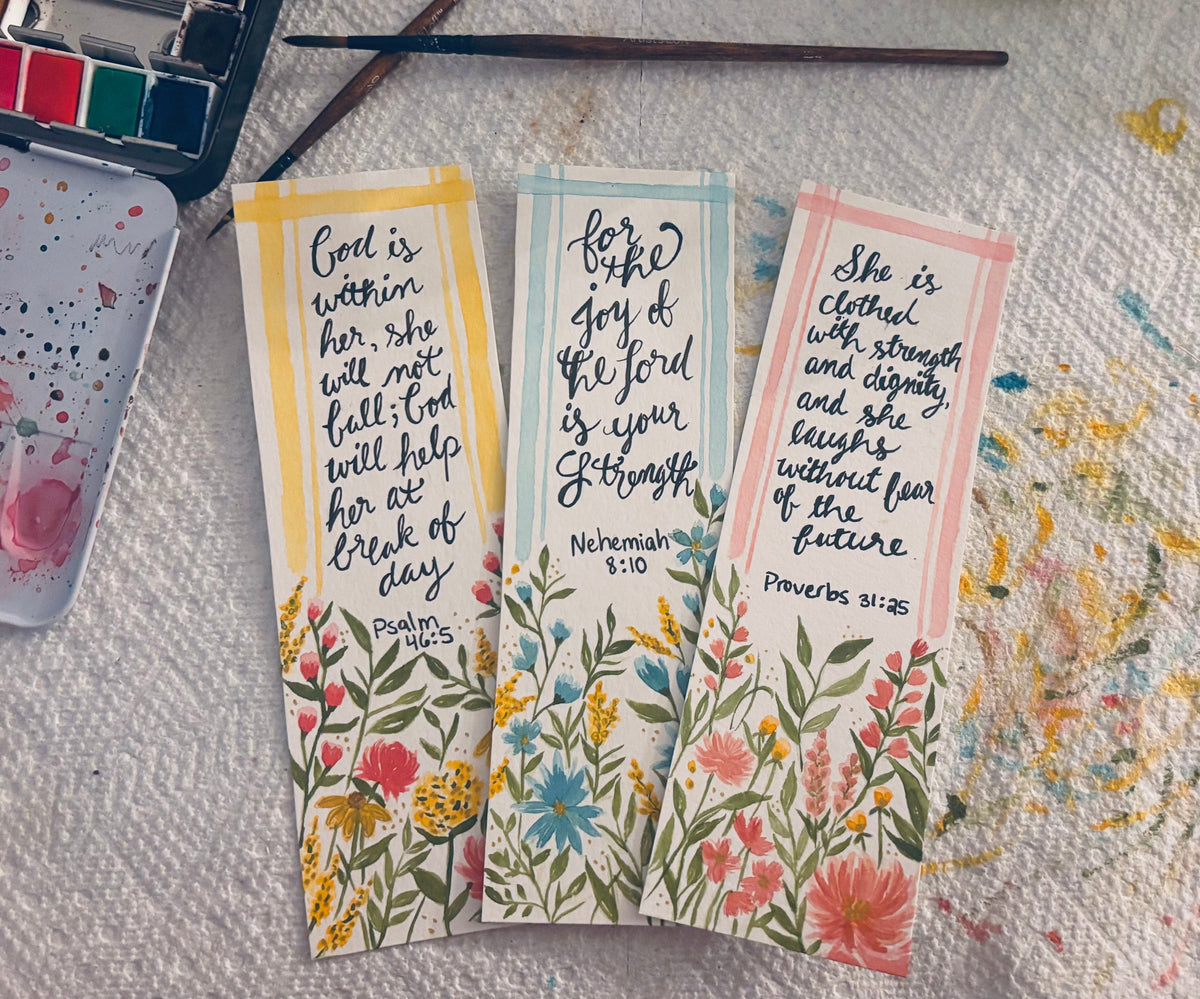 God is
within
her, she
will not
fall; God
will help
her at
break of
day
Psalm
46:5
for
the
joy of
the Lord
is your
Strength
Nehemiah
8:10
She is
clothed
with strength
and dignity,
and she
laughs
without fear
of the
future.
Proverbs 31:25